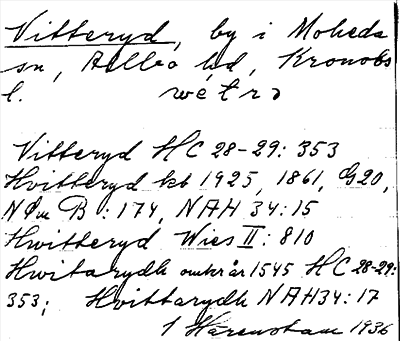 Vitteryd, by i Moheda
sn, Allbo hd, Kronobs
l. wétrɔ
Vitteryd HC 28-29: 353
Hvitteryd kb 1925, 1861, G20,
N B : 174, NAH 34:15
Hwitteryd Wies II: 810
Hwitarydh omkr år 1545 HC 28-29:
353; Hvittarydh NAH 34: 17
1936